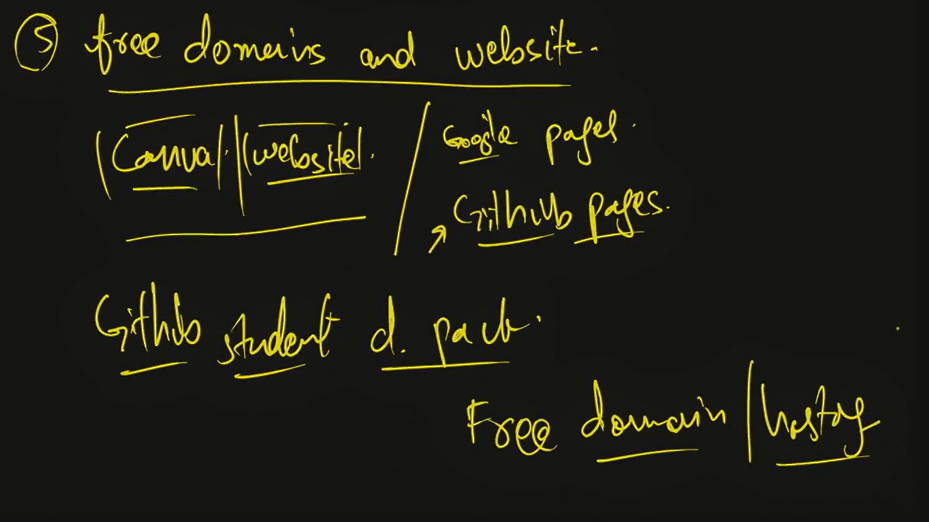 ⑤ free domains and website.
|Canva.||website|. / Google pages.
Github pages.
Github student d. pack.
Free domain / hosting